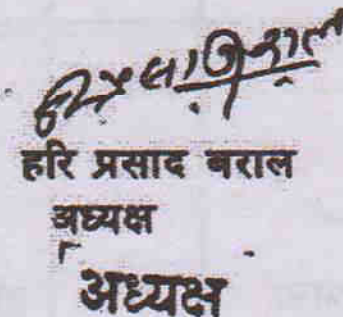 हरि प्रसाद बराल
अध्यक्ष
अध्यक्ष